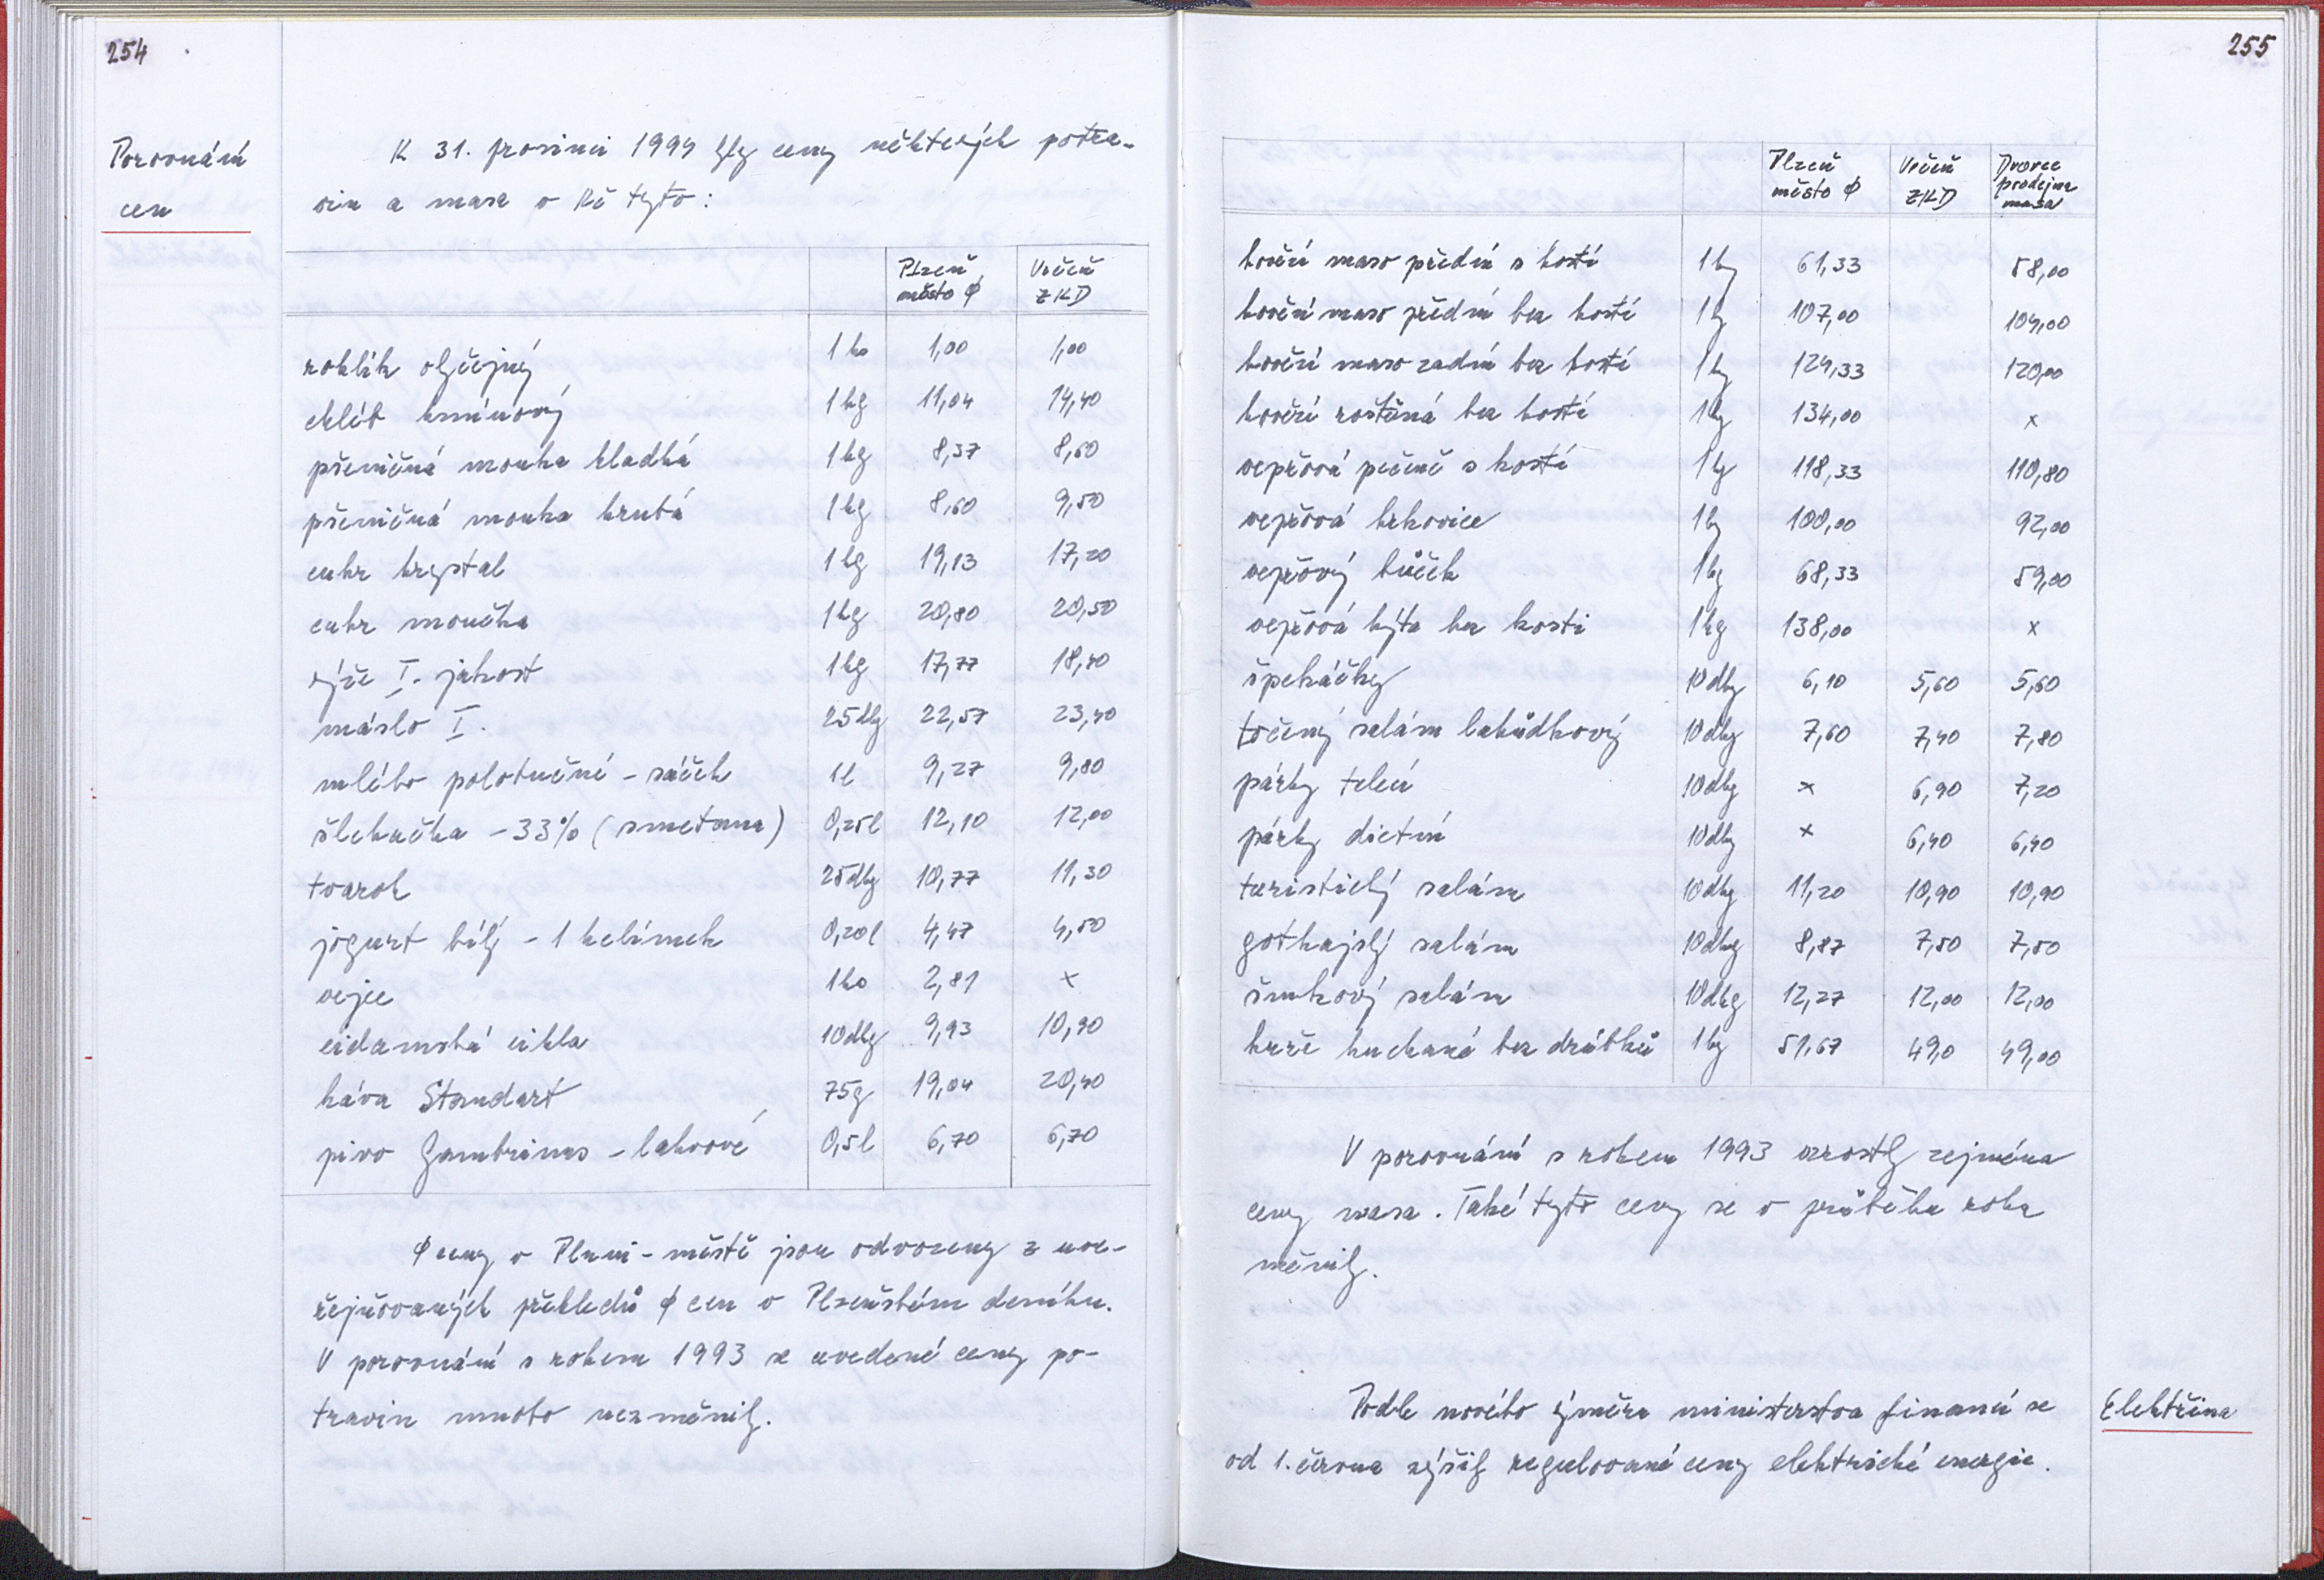 254
Porovnání
cen
K 31. prosinci 1994 byly ceny některých potra-
vin a masa v Kč tyto:
Plzeň město ϕ Vrčeň ZKD
rohlík obyčejný 1 ks 1,00 1,00
chléb kmínový 1 kg 11,04 14,40
pšeničná mouka hladká 1 kg 8,37 8,60
pšeničná mouka hrubá 1 kg 8,60 9,50
cukr krystal 1 kg 19,13 17,20
cukr moučka 1 kg 20,80 20,50
rýže I. jakost 1 kg 17,77 18,40
máslo I. 25 dkg 22,57 23,40
mléko polotučné - sáček 1 l 9,27 9,80
šlehačka - 33% (smetana) 0,25 l 12,10 12,00
tvaroh 25 dkg 10,77 11,30
jogurt bílý - 1 kelímek 0,20 l 4,47 4,50
vejce 1 ks 2,81 x
eidamská cihla 10 dkg 9,93 10,90
káva Standart 75 g 19,04 20,40
pivo Gambrinus - lahvové 0,5 l 6,70 6,70
ϕ ceny v Plzni - městě jsou odvozeny z uve-
řejňovaných přehledů ϕ cen v Plzeňském deníku.
V porovnání s rokem 1993 se uvedené ceny po-
travin mnoho nezměnily.
255
Plzeň město ϕ Vrčeň ZKD Dvorec prodejna masa
hovězí maso přední s kostí 1 kg 61,33 58,00
hovězí maso přední bez kosti 1 kg 107,00 104,00
hovězí maso zadní bez kosti 1 kg 124,33 120,00
hovězí roštěná bez kosti 1 kg 134,00 x
vepřová pečeně s kostí 1 kg 118,33 110,80
vepřová krkovice 1 kg 100,00 92,00
vepřový bůček 1 kg 68,33 59,00
vepřová kýta bez kosti 1 kg 138,00 x
špekáčky 10 dkg 6,10 5,60 5,60
točený salám lahůdkový 10 dkg 7,60 7,40 7,80
párky telecí 10 dkg x 6,90 7,20
párky dietní 10 dkg x 6,40 6,40
turistický salám 10 dkg 11,20 10,90 10,90
gothajský salám 10 dkg 8,87 7,50 7,50
šunkový salám 10 dkg 12,27 12,00 12,00
kuře kuchané bez drůbků 1 kg 51,67 49,0 49,00
V porovnání s rokem 1993 vzrostly zejména
ceny masa. Také tyto ceny se v průběhu roku
měnily.
Podle nového výměru ministerstva financí se
od 1. června zvýšily regulované ceny elektrické energie.
Elektřina